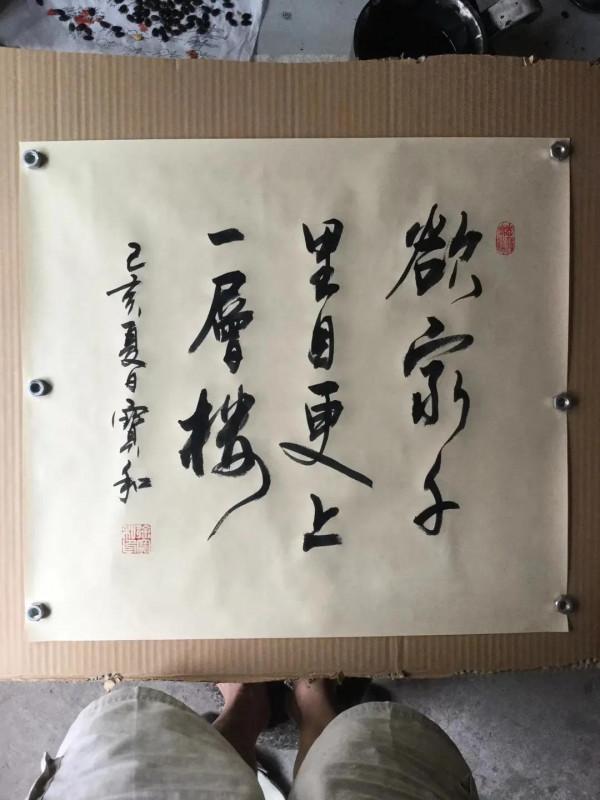 欲穷千
里目更上
一層楼
己亥夏日寶和